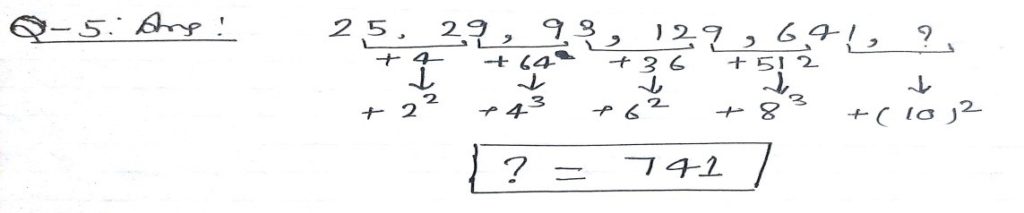 Q-5: Ans:
25, 29, 93, 129, 641, ?
+4 +64 +36 +512
↓ ↓ ↓ ↓ ↓
+2² +4³ +6² +8³ +(10)²
? = 741